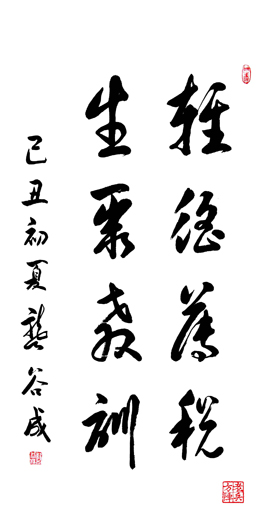 輕徭薄税
生聚教訓
己丑初夏龔谷成